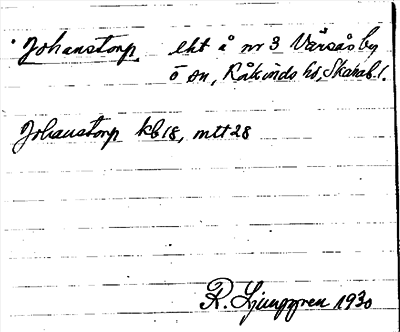 Johanstorp lht å nr 3 Värsås by
ö sn, Kåkinds hd, Skarab. l.
Johanstorp kb 18, mtt 28
R. Ljunggren 1930